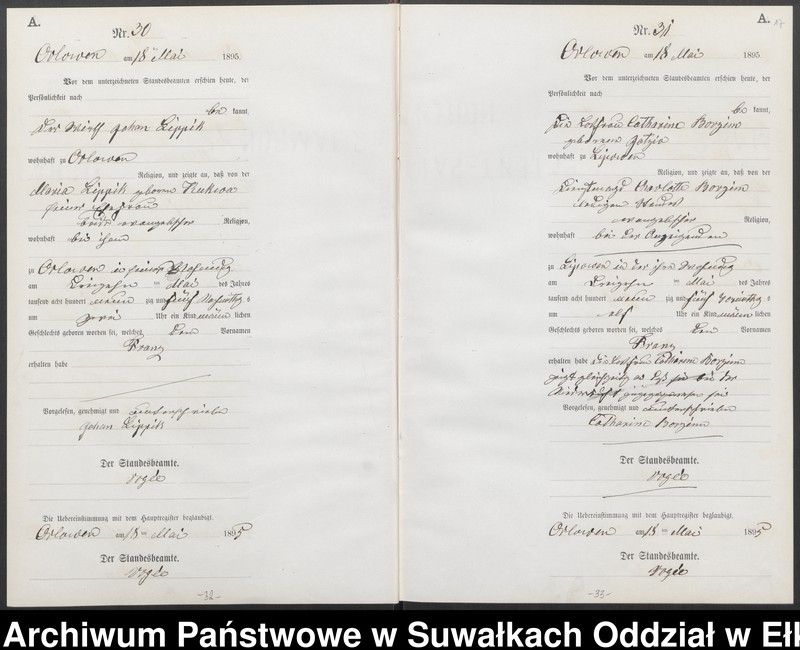 A.
Nr. 30
Orlowen am 18 ten Mai 1895
Vor dem unterzeichneten Standesbeamten erschien heute, der
Persönlichkeit nach
be kannt,
Der Wirth Johan Lippik
wohnhaft zu Orlowen
Religion, und zeigte an, daß von der
Maria Lippik geboren
seiner Ehefrau
beide evangelischer Religion,
wohnhaft bei ihm
zu Orlowen in seiner Wohnung
am Dreizehn ten Mai des Jahres
tausend acht hundert neun zig und fünf Nachmittag s
um zwei Uhr ein Kind männ lichen
Geschlechts geboren worden sei, welches den Vornamen
Franz
erhalten habe
Vorgelesen, genehmigt und unterschrieben
Johan Lippik
Der Standesbeamte.
Die Uebereinstimmung mit dem Hauptregister beglaubigt.
Orlowen am 18 ten Mai 1895
Der Standesbeamte.
-32-
A.
Nr. 31
Orlowen am 18 Mai 1895
Vor dem unterzeichneten Standesbeamten erschien heute, der
Persönlichkeit nach
be kannt,
Die Losfrau Catharine Borzim
geborene
wohnhaft zu Lipowen
Religion, und zeigte an, daß von der
Dienstmagd Charlotte Borzim
ledigen Standes
evangelischer Religion,
wohnhaft bei der Anzeigenden
zu Lipowen in der ihrer Wohnung
am Dreizehn ten Mai des Jahres
tausend acht hundert neun zig und fünf Vormittag s
um elf Uhr ein Kind männ lichen
Geschlechts geboren worden sei, welches den Vornamen
Franz
erhalten habe die Losfrau Catharine Borzim
zeigt gleichzeitig an daß sie bei der
Niederkunft zugegen gewesen sei
Vorgelesen, genehmigt und unterschrieben
Catharine Borzim
Der Standesbeamte.
Die Uebereinstimmung mit dem Hauptregister beglaubigt.
Orlowen am 18 ten Mai 1895
Der Standesbeamte.
-33-
Archiwum Państwowe w Suwałkach Oddział w Ełk